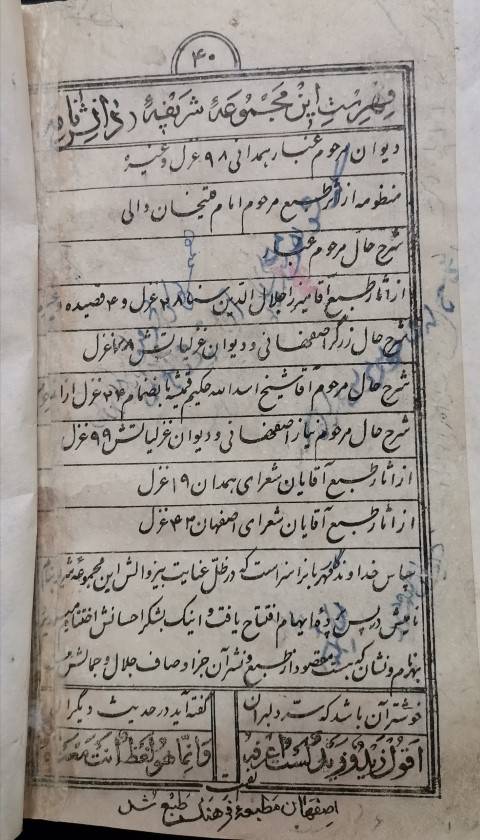 ۴۰
فهرست این مجموعهٔ شریفهٔ (دانش نامه
دیوان مرحوم غبار همدانی ۹۸ غزل و غیره
منظومه از اثر طبع مرحوم امام فتیحخان والی
شرح حال مرحوم غبار
از آثار طبع آقامیرزا جلال الدین سنا ۲۸ غزل و ۴ قصیده و
شرح حال زرگر اصفهانی و دیوان غزلیاتش ۲۸ غزل
شرح حال مرحوم آقا شیخ اسدالله حکیم قمشهٔ بانضمام ۲۴ غزل از
شرح حال مرحوم نیاز اصفهانی و دیوان غزلیاتش ۹۹ غزل
از آثار طبع آقایان شعرای همدان ۱۹ غزل
از آثار طبع آقایان شعرای اصفهان ۴۲ غزل
سپاس خداوند مهربان را سزا است که در ظل عنایت بیزوالش این مجموعه شریفه
نامیش در پس پردهٔ ابهام افتتاح یافت و اینک بشکر احسانش اختتام
بینام و نشان که مقصود از طبع و نشر آن جز اوصاف جلال و جمالش
خوشتر آن باشد که سر دلبران
گفته آید در حدیث دیگران
اقول زید و زید لست اعرفه
وانما هو لفظ انت معناه
تمت
اصفهان مطبعهٔ فرهنگ طبع شد